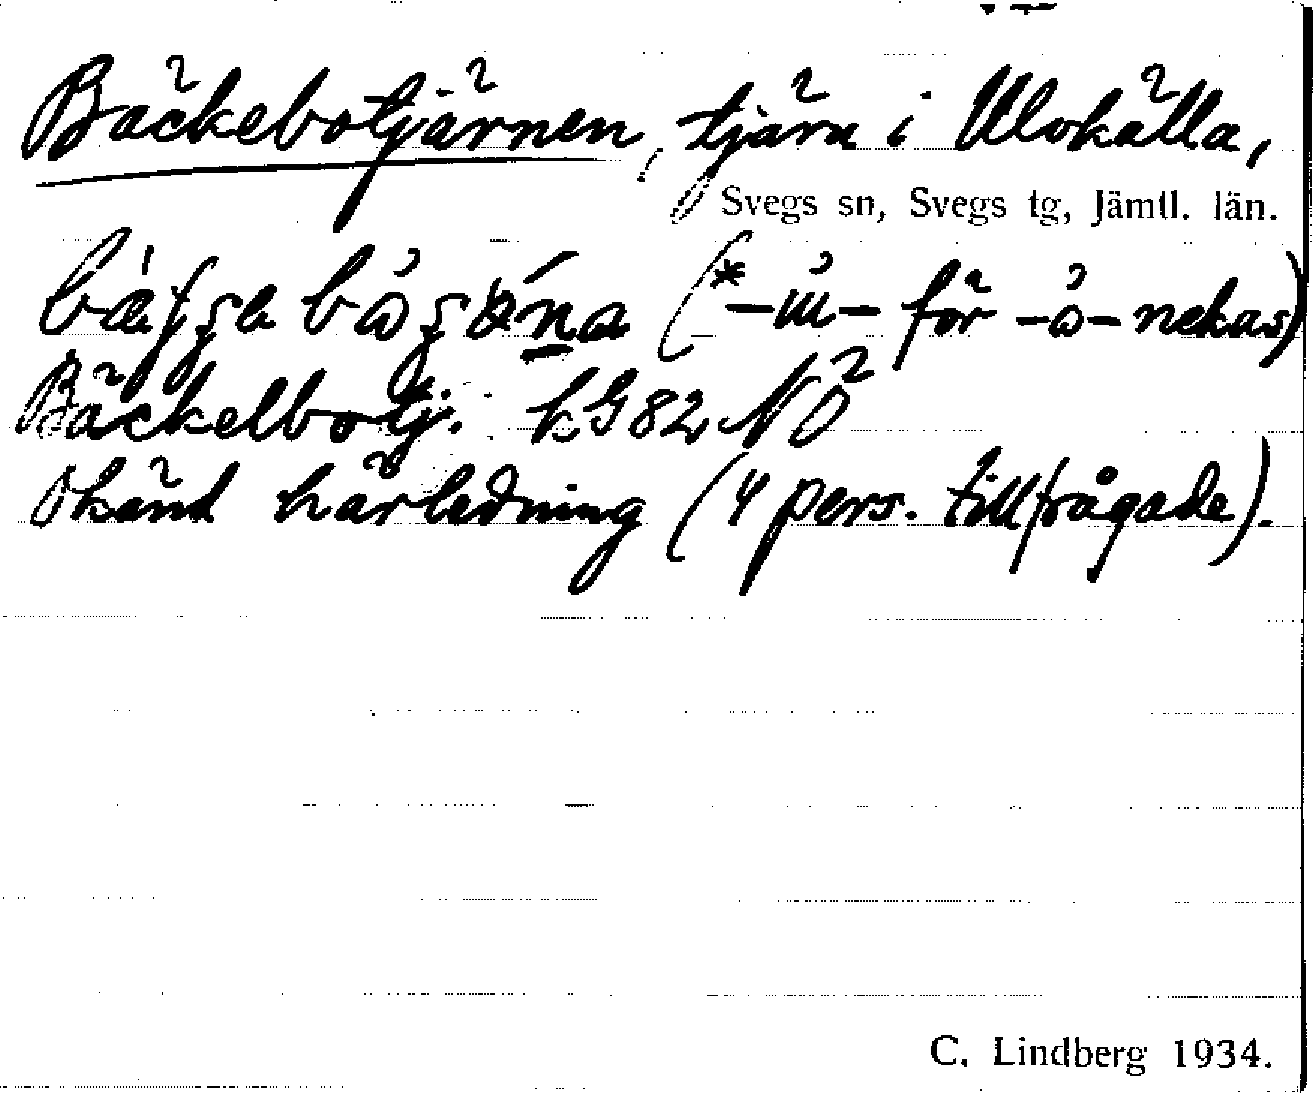 Bäckebotjärnen, tjärn i Ulvkälla,
Svegs sn, Svegs tg, Jämtl. län.
(*-ω̉- för -å̉- nekas)
Bäckelbotj. kG 82 NÖ
Okänd härledning (4 pers. tillfrågade).
C. Lindberg 1934.